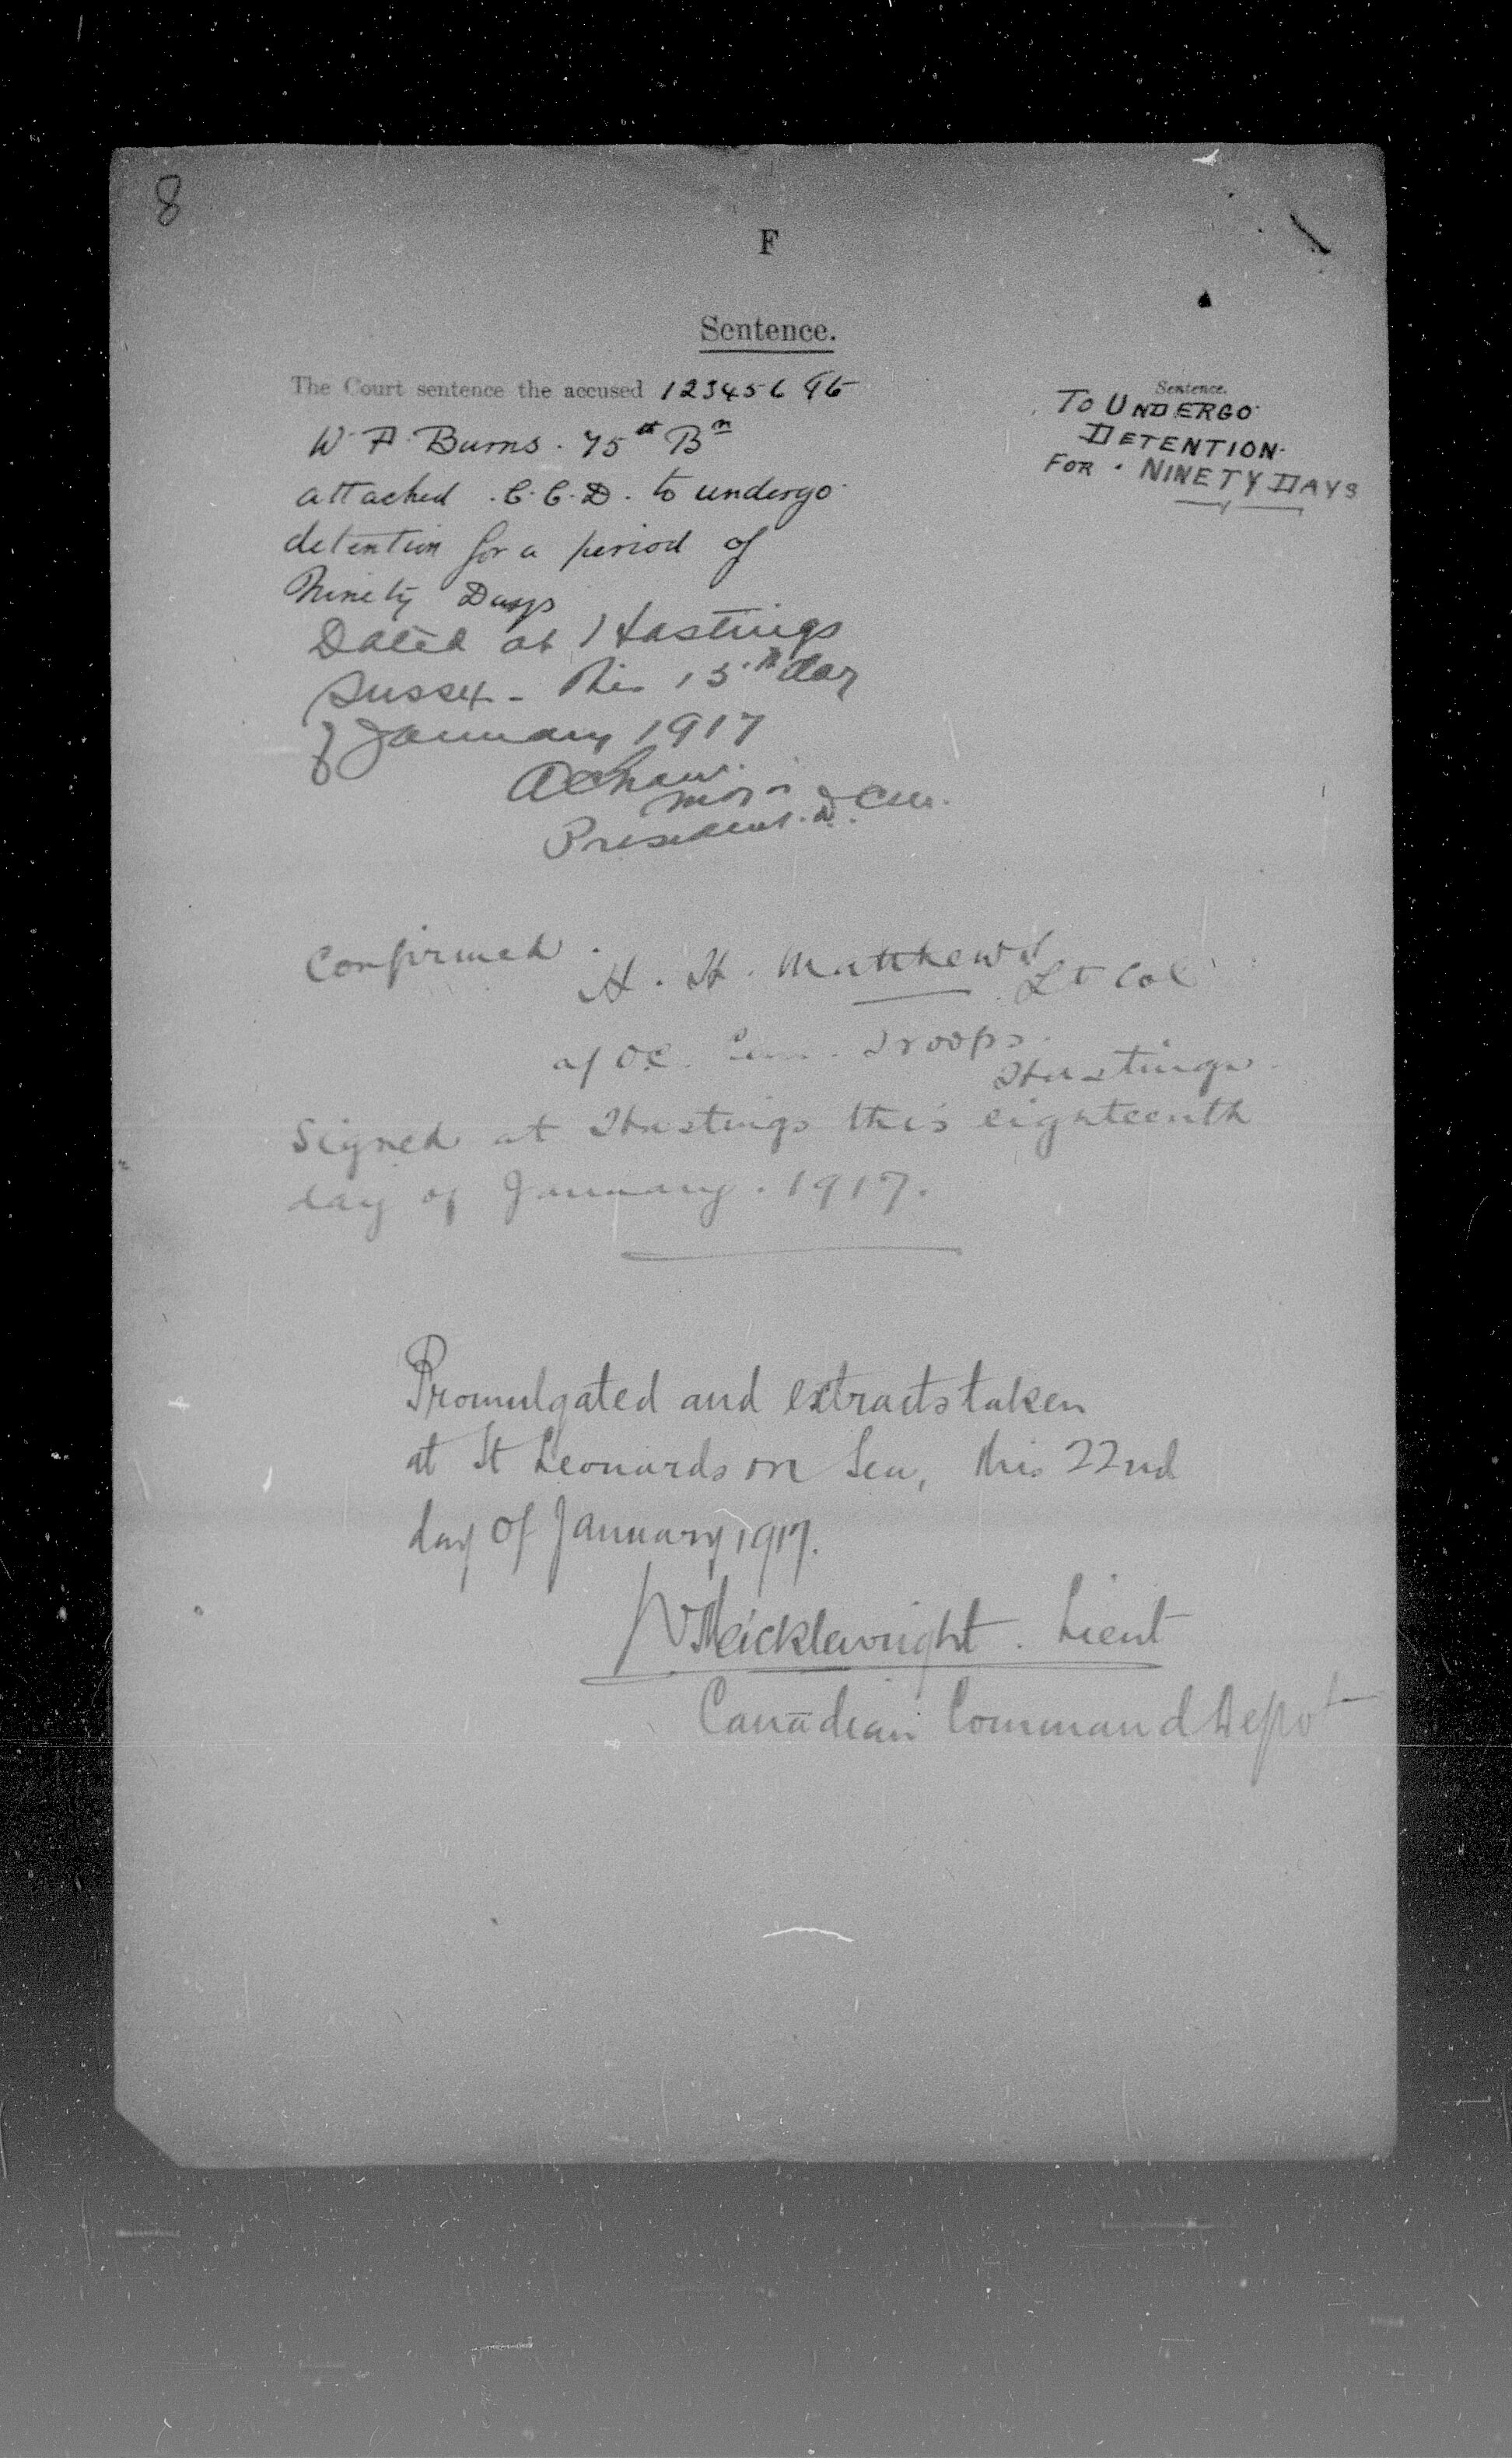 8
F
Sentence.
The Court sentence the accused 123456 Pte
W. A. Burns. 75th Bn
attached .C.C.D. to undergo
detention for a period of
Ninety Days
Dated at Hastings
Sussex - this 15th day
of January 1917
Major
President. D.C.M.
Sentence.
To UNDERGO
DETENTION.
FOR . NINETY DAYS
Confirmed .
H. H. Matthews Lt Col
a/ O.C. Can. Troops.
Hastings.
Signed at Hastings this eighteenth
day of January . 1917.
Promulgated and extracts taken
at St Leonards on Sea, this 22nd
day of January 1917.
Meicklewright . Lieut
Canadian Command Depot